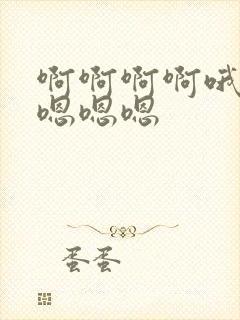 啊啊啊啊哦
嗯嗯嗯
蛋蛋